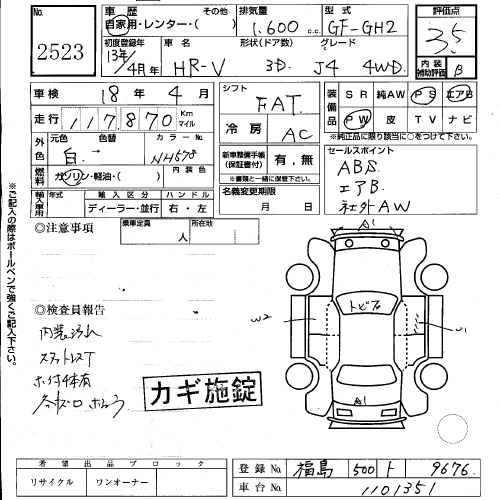 2523
車歴 自家用・レンター・( ) その他
排気量 1.600 c.c.
型式 GF-GH2
評価点 3.5
初度登録年 13年/4月
車名 HR-V
形状(ドア数) 3D
グレード J4 4WD
内装補助評価 B
車検 18年 4月
シフト FAT
走行 117,870 Km マイル
冷房 AC
装備品 SR 純AW PS エアB
PW 皮 TV ナビ
※純正品に限り該当に○をつけて下さい。
外色 元色 白 色替 カラーNo. NH578
燃料 ガソリン・軽油・( ) 内装色
新車整備手帳(保証書付) 有・無
※書類と一緒に保管下さい。
セールスポイント
ABS
エアB
社外AW
輸入車用 年式 輸入区分 ハンドル
ディーラー・並行 右・左
名義変更期限 月 日
◎注意事項
乗車定員 人
所在地
※ご記入の際はボールペンで強くご記入下さい。
A1
トビフ
W2
U1
A1
◎検査員報告
カギ施錠
希望出品ブロック
リサイクル ワンオーナー
登録No. 福島 500 ト 9676
車台No. 1101351